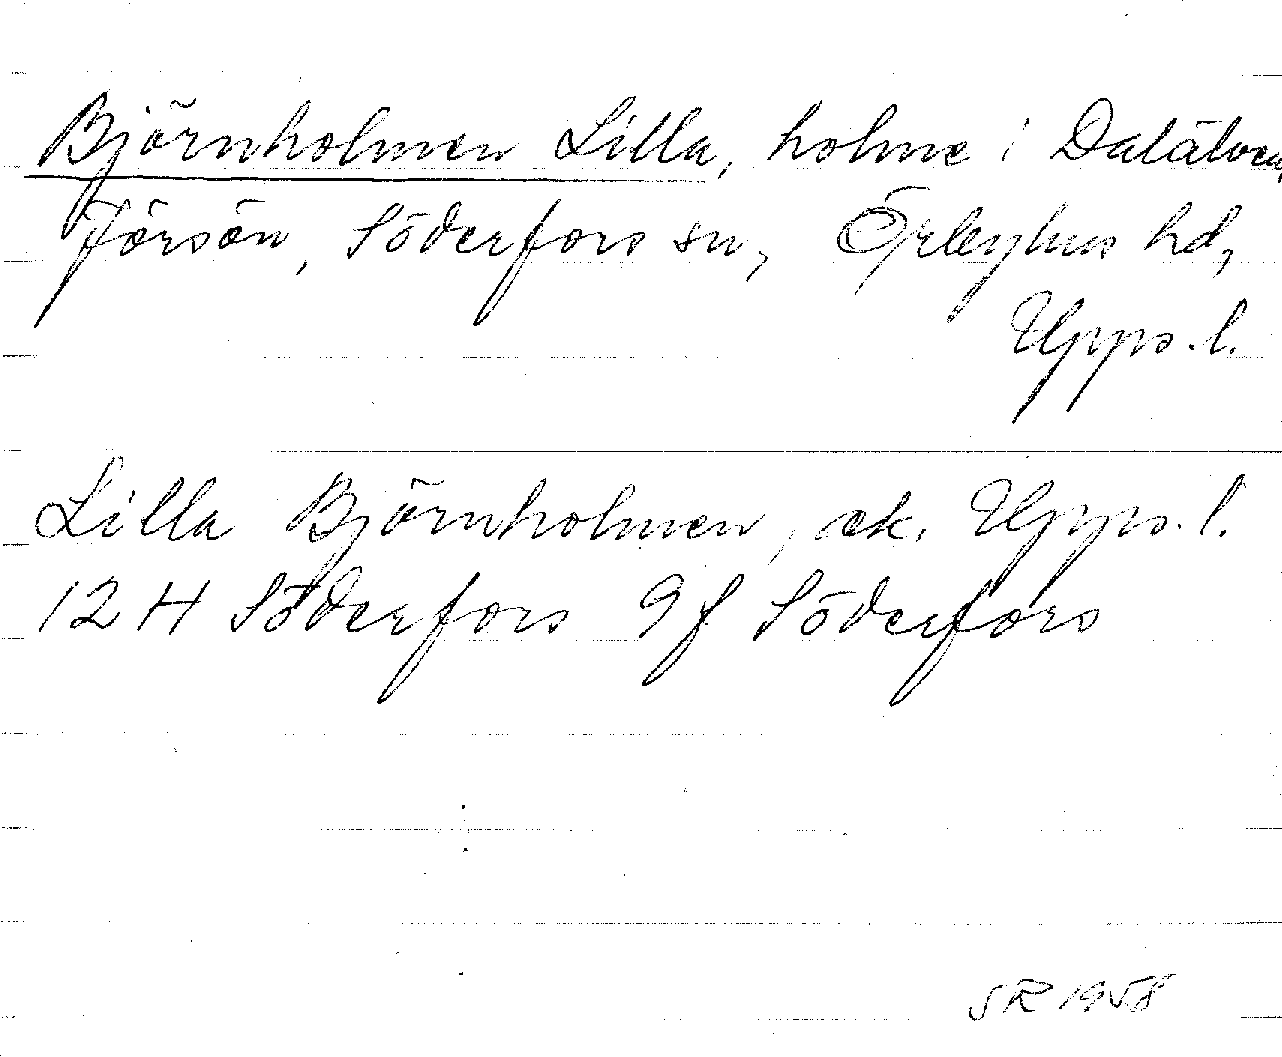 Björnholmen Lilla, holme i Dalälven,
Jörsön, Söderfors sn, Örbyhus hd,
Upps. l.
Lilla Björnholmen, ek. Upps. l.
12 H Söderfors 9f Söderfors
SR 1958